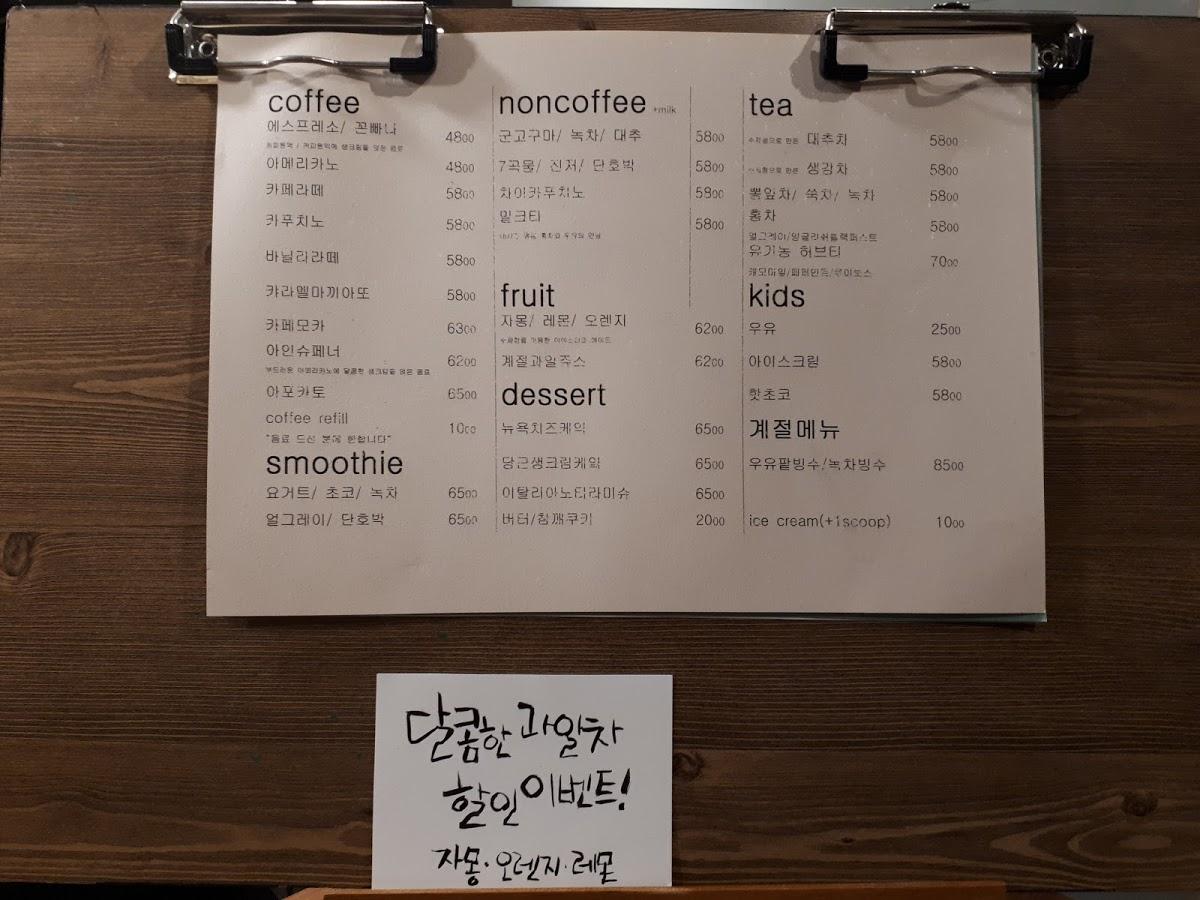 coffee
에스프레소/ 꼰빠나 4800
아메리카노 4800
카페라떼 5800
카푸치노 5800
바닐라라떼 5800
캬라멜마끼아또 5800
카페모카 6300
아인슈페너 6200
부드러운 아메리카노에 달콤한 생크림을 얹은 음료
아포카토 6500
coffee refill 1000
"음료 드신 분에 한합니다"
smoothie
요거트/ 초코/ 녹차 6500
얼그레이/ 단호박 6500
noncoffee +milk
군고구마/ 녹차/ 대추 5800
7곡물/ 진저/ 단호박 5800
차이카푸치노 5800
밀크티 5800
fruit
자몽/ 레몬/ 오렌지 6200
계절과일쥬스 6200
dessert
뉴욕치즈케익 6500
당근생크림케익 6500
이탈리아노티라미슈 6500
버터/참깨쿠키 2000
tea
대추차 5800
생강차 5800
뽕잎차/ 쑥차/ 녹차 5800
홍차 5800
얼그레이/잉글리쉬블랙퍼스트
유기농 허브티 7000
캐모마일/페퍼민트/루이보스
kids
우유 2500
아이스크림 5800
핫초코 5800
계절메뉴
우유팥빙수/녹차빙수 8500
ice cream(+1scoop) 1000
달콤한 과일차
할인 이벤트!
자몽·오렌지·레몬